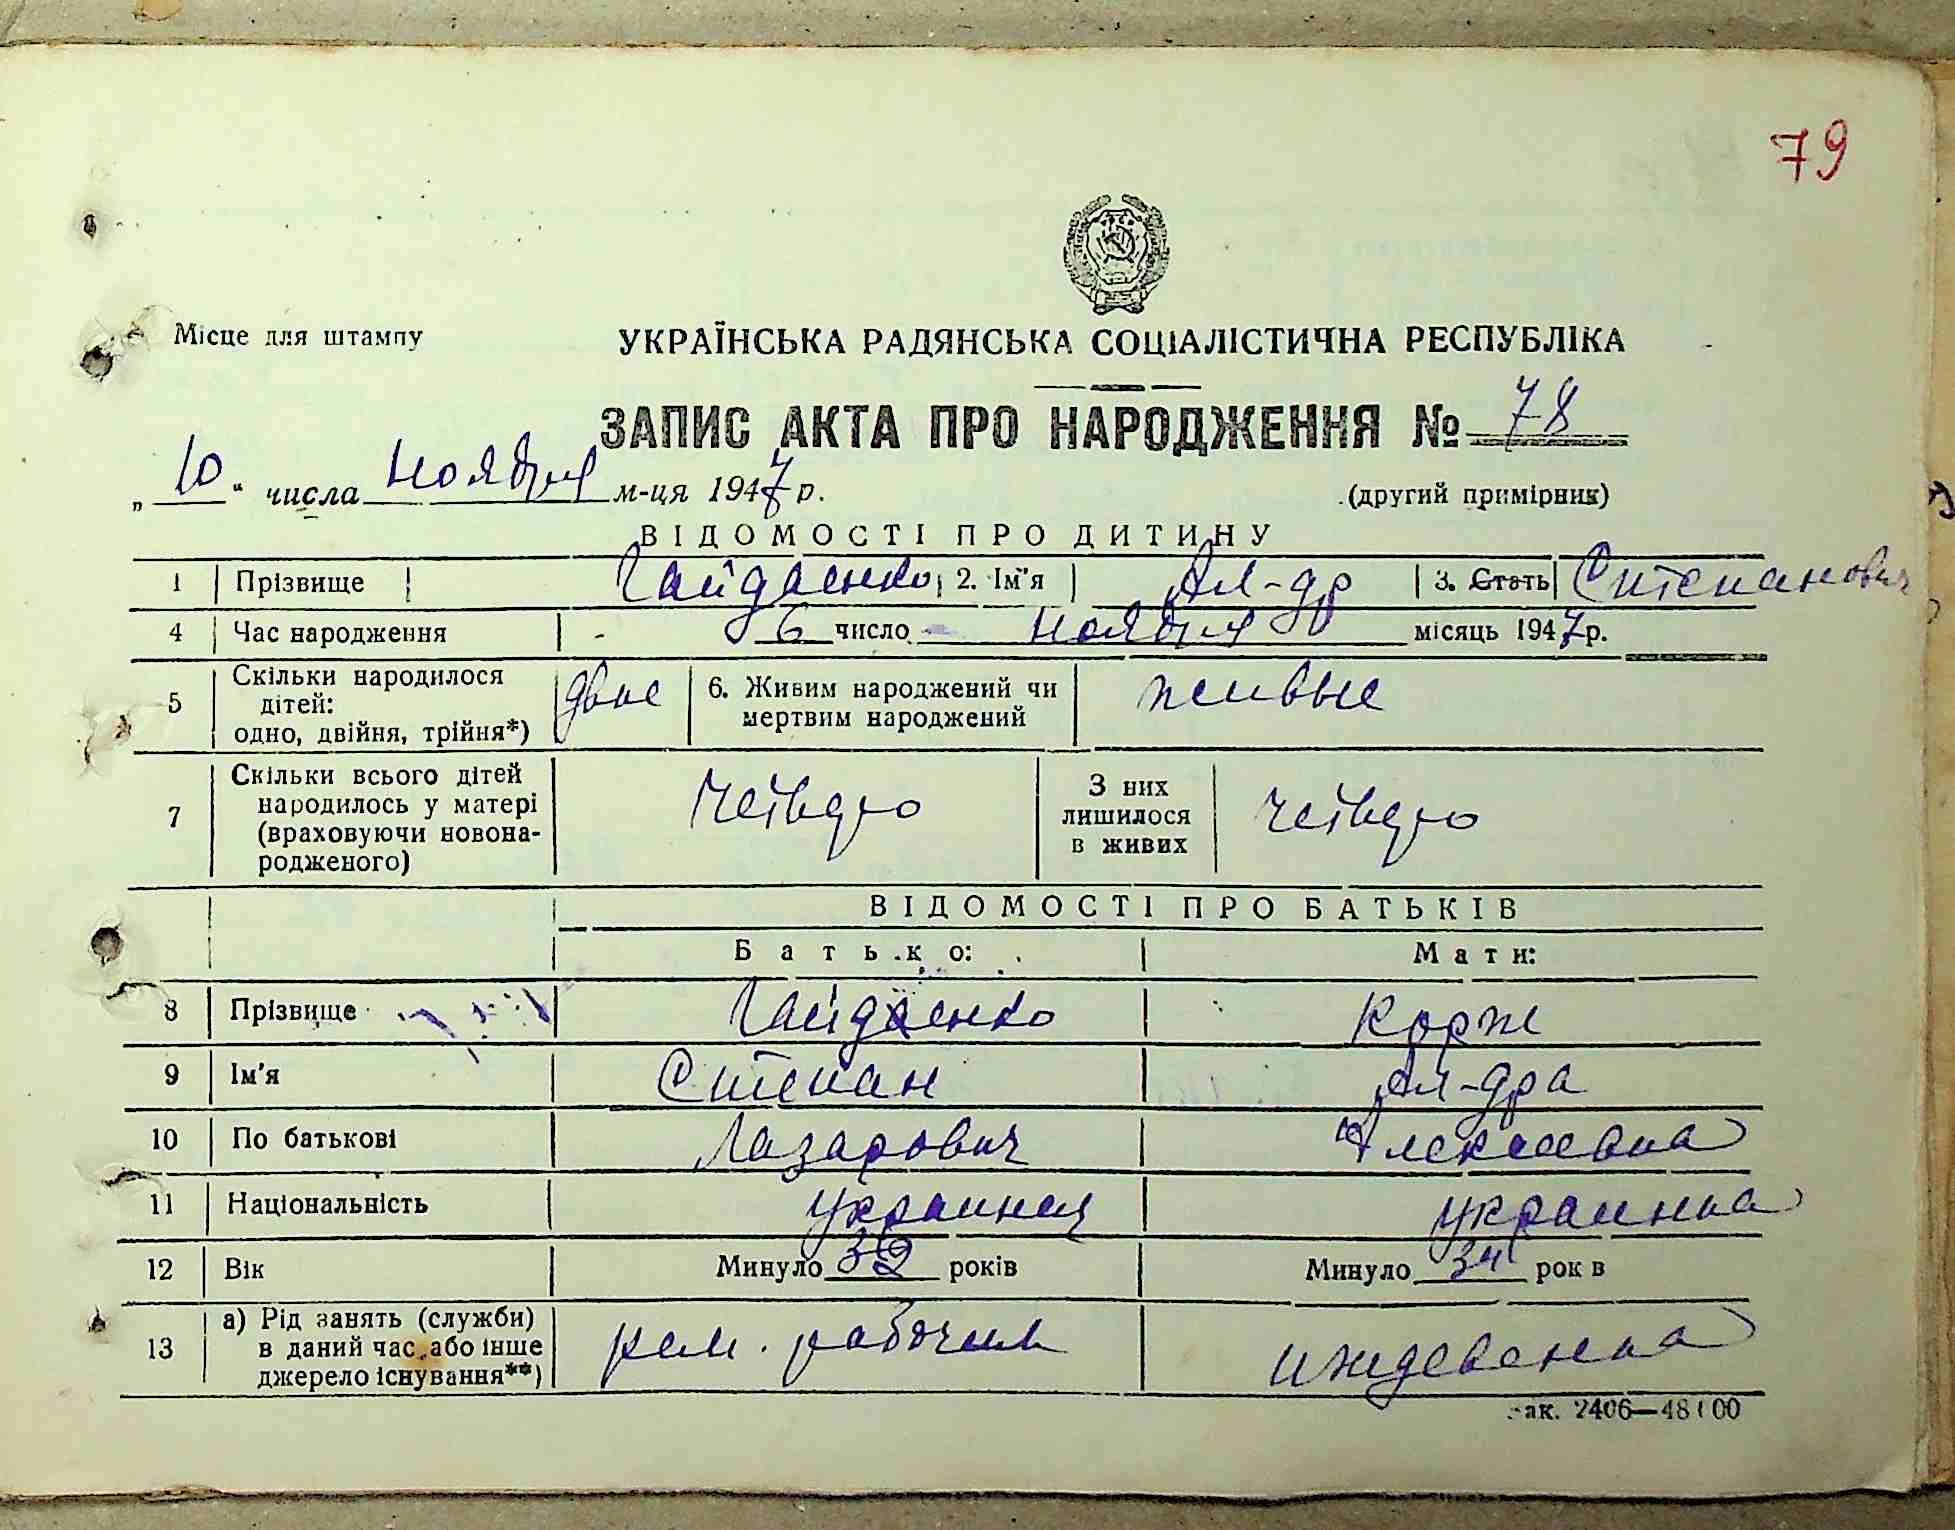 79
Місце для штампу
УКРАЇНСЬКА РАДЯНСЬКА СОЦІАЛІСТИЧНА РЕСПУБЛІКА
ЗАПИС АКТА ПРО НАРОДЖЕННЯ № 78
„10“ числа ноября м-ця 1947 р. (другий примірник)
ВІДОМОСТІ ПРО ДИТИНУ
1 Прізвище Гайдаенко 2. Ім'я Ал-др 3. Стать Степанович
4 Час народження 6 число ноября місяць 1947 р.
5 Скільки народилося дітей: одно, двійня, трійня*) двое 6. Живим народжений чи мертвим народжений живые
7 Скільки всього дітей народилось у матері (враховуючи новонародженого) четверо З них лишилося в живих четверо
ВІДОМОСТІ ПРО БАТЬКІВ
Батько: Мати:
8 Прізвище Гайдаенко Корж
9 Ім'я Степан Ал-дра
10 По батькові Лазарович Алексеевна
11 Національність украинец украинка
12 Вік Минуло років Минуло 34 рок в
13 а) Рід занять (служби) в даний час або інше джерело існування**) рем. рабочий иждевенка
Зак. 2406—48100